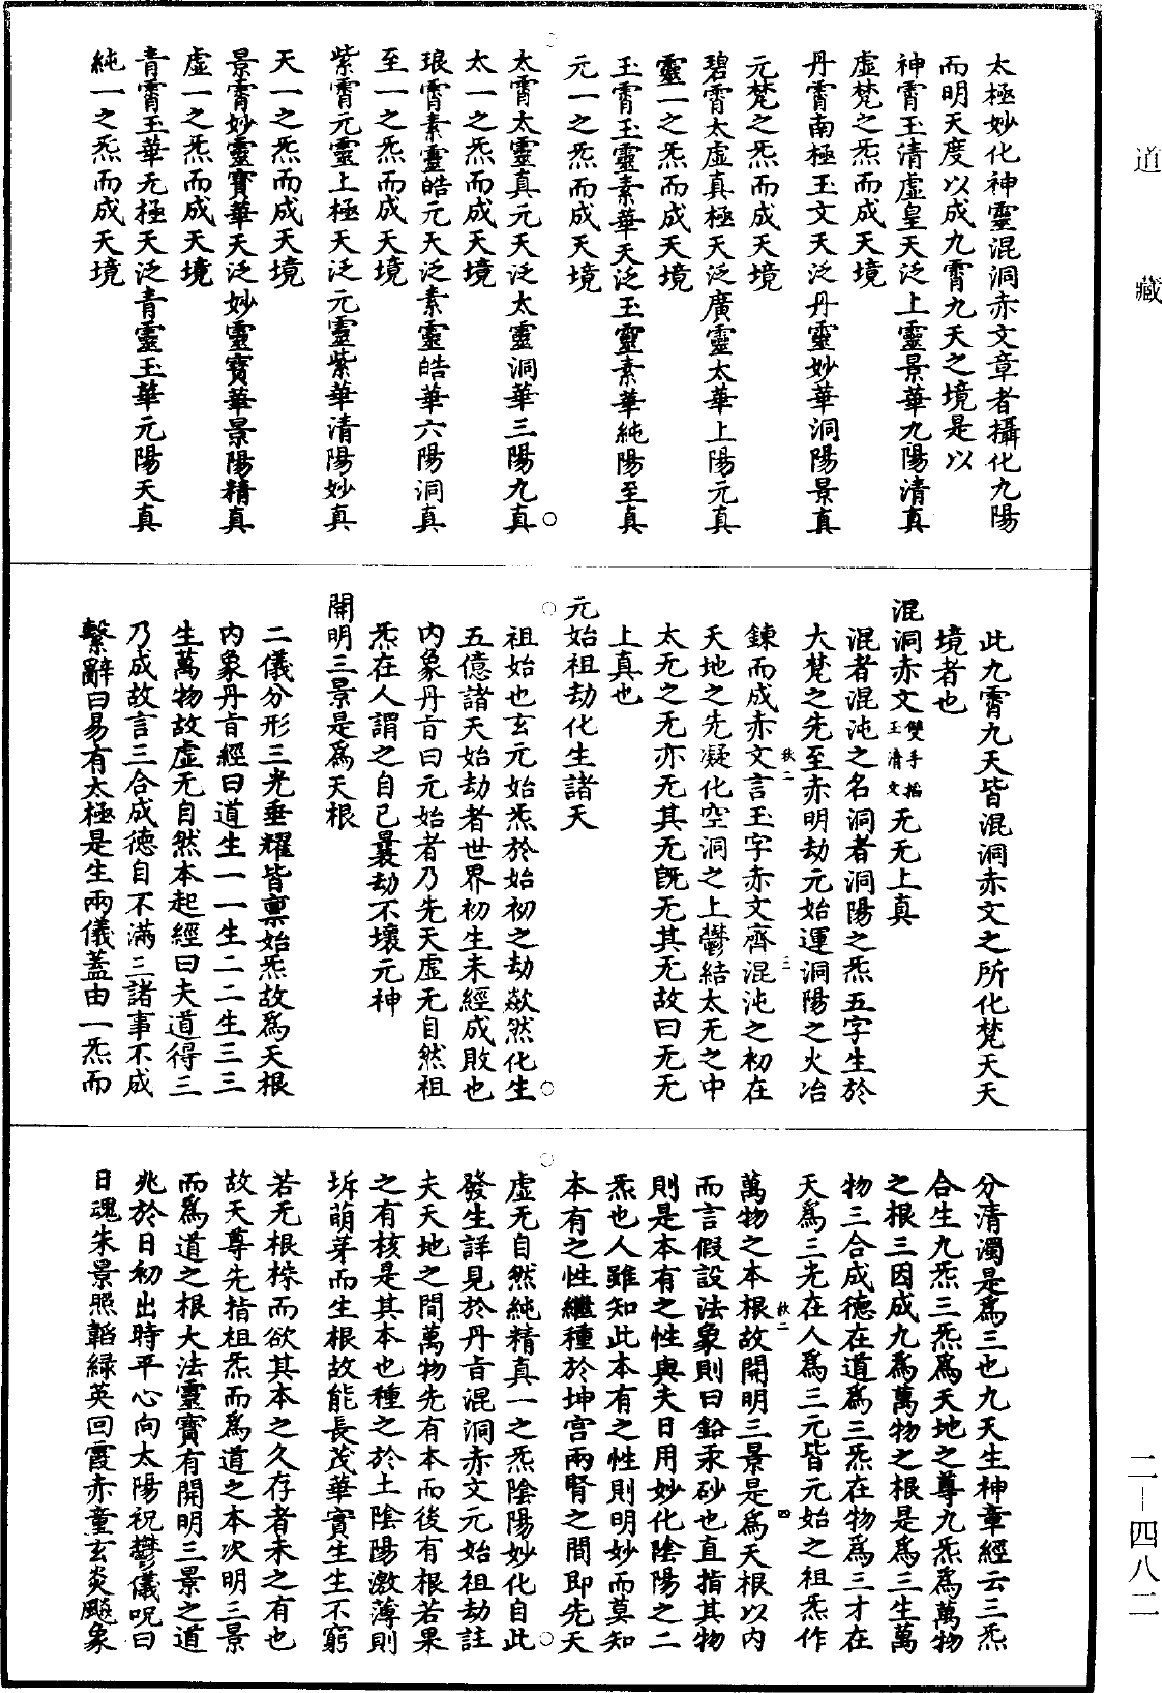 道藏
太極妙化神靈混洞赤文章者攝化九陽
而明天度以成九霄九天之境是以
神霄玉清虛皇天泛上靈景華九陽清真
虛梵之炁而成天境
丹霄南極玉文天泛丹靈妙華洞陽景真
元梵之炁而成天境
碧霄太虛真極天泛廣靈太華上陽元真
靈一之炁而成天境
玉霄玉靈素華天泛玉靈素華純陽至真
元一之炁而成天境
太霄太靈真元天泛太靈洞華三陽九真
太一之炁而成天境
琅霄素靈皓元天泛素靈皓華六陽洞真
至一之炁而成天境
紫霄元靈上極天泛元靈紫華清陽妙真
天一之炁而成天境
景霄妙靈寶華天泛妙靈寶華景陽精真
虛一之炁而成天境
青霄玉華无極天泛青靈玉華元陽天真
純一之炁而成天境
此九霄九天皆混洞赤文之所化梵天天
境者也
混洞赤文雙手掐玉清文无无上真
混者混沌之名洞者洞陽之炁五字生於
大梵之先至赤明劫元始運洞陽之火冶
鍊而成赤文言玉字赤文齊混沌之初在
秋二 三
天地之先凝化空洞之上鬱結太无之中
太无之无亦无其无既无其无故曰无无
上真也
元始祖劫化生諸天
祖始也玄元始炁於始初之劫歘然化生
五億諸天始劫者世界初生未經成敗也
內象丹旨曰元始者乃先天虛无自然祖
炁在人謂之自己曩劫不壞元神
開明三景是為天根
二儀分形三光垂耀皆禀始炁故為天根
內象丹旨經曰道生一一生二二生三三
生萬物故虛无自然本起經曰夫道得三
乃成故言三合成德自不滿三諸事不成
繫辭曰易有太極是生兩儀蓋由一炁而
分清濁是為三也九天生神章經云三炁
合生九炁三炁為天地之尊九炁為萬物
之根三因成九為萬物之根是為三生萬
物三合成德在道為三炁在物為三才在
天為三光在人為三元皆元始之祖炁作
萬物之本根故開明三景是為天根以內
秋二 四
而言假設法象則曰鉛汞砂也直指其物
則是本有之性與夫日用妙化陰陽之二
炁也人雖知此本有之性則明妙而莫知
本有之性繼種於坤宫兩腎之間即先天
虛无自然純精真一之炁陰陽妙化自此
發生詳見於丹旨混洞赤文元始祖劫註
夫天地之間萬物先有本而後有根若果
之有核是其本也種之於土陰陽激薄則
坼萌芽而生根故能長茂華實生生不窮
若无根株而欲其本之久存者未之有也
故天尊先指祖炁而為道之本次明三景
而為道之根大法靈寶有開明三景之道
兆於日初出時平心向太陽祝鬱儀呪曰
日魂朱景照韜緑英回霞赤童玄炎飈象
二—四八二